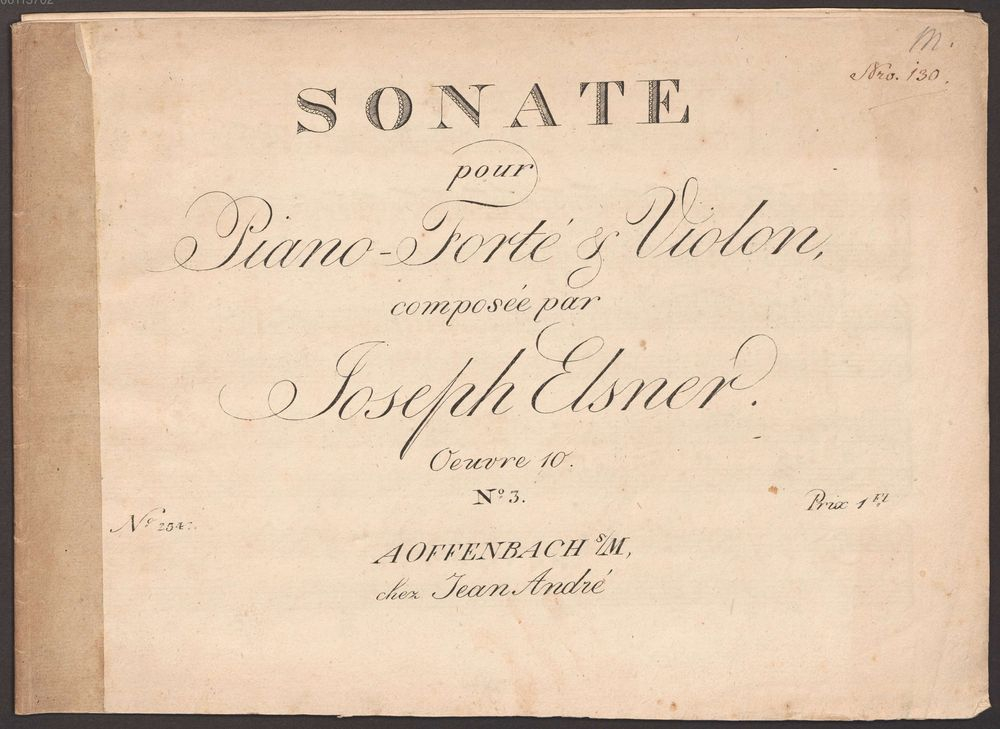 M.
Nro. 130.
SONATE
pour
Piano-Forté & Violon,
composée par
Joseph Elsner.
Oeuvre 10.
Nº 3.
Prix 1 Fl.
AOFFENBACH s/M,
chez Jean André